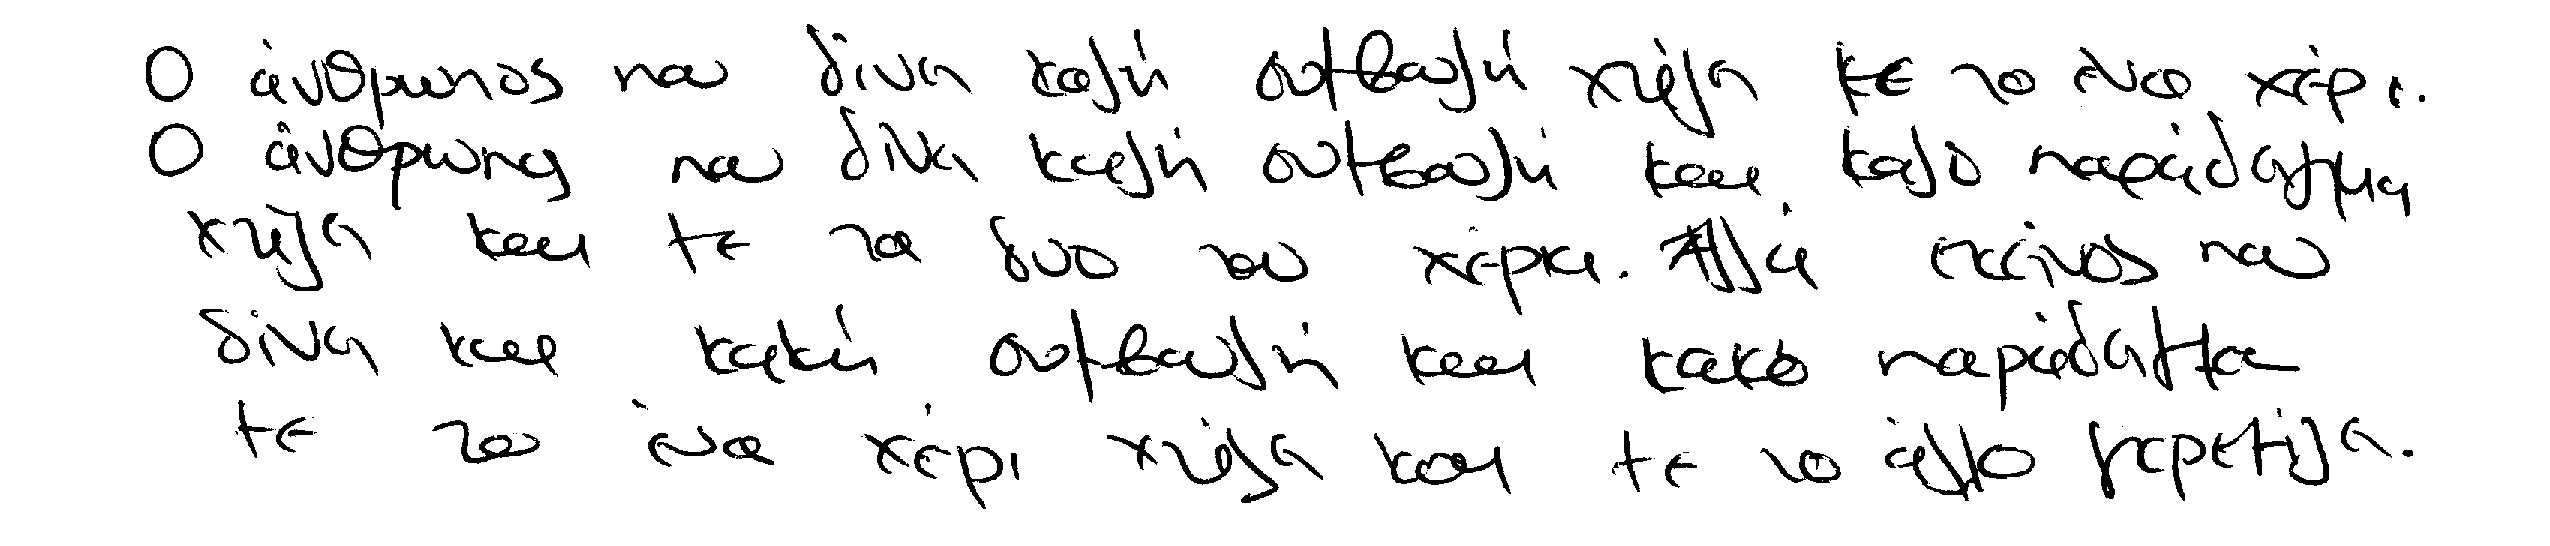 Ο άνθρωπος που δίνει καλή συμβουλή χτίζει με το ένα χέρι.
Ο άνθρωπος που δίνει καλή συμβουλή και καλό παράδειγμα
χτίζει και με τα δυο του χέρια. Αλλά εκείνος που
δίνει και κακή συμβουλή και κακό παράδειγμα
με το ένα χέρι χτίζει και με το άλλο γκρεμίζει.